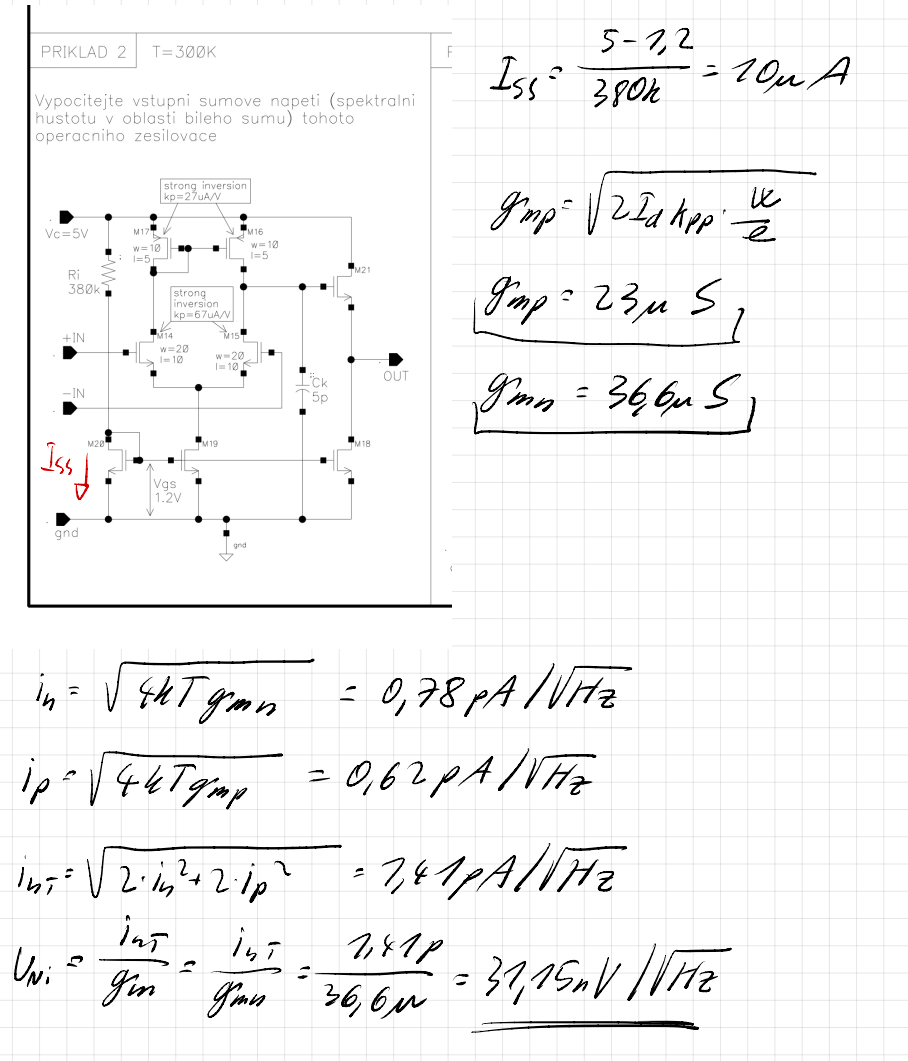 PRIKLAD 2 T=300K
Vypocitejte vstupni sumove napeti (spektralni
hustotu v oblasti bileho sumu) tohoto
operacniho zesilovace
strong inversion
kp=27uA/V
Vc=5V
M17
M16
w=10
l=5
w=10
l=5
Ri
380k
M21
strong
inversion
kp=67uA/V
+IN
M14
M15
w=20
l=10
w=20
l=10
OUT
Ck
5p
-IN
M20
M19
M18
Iss
Vgs
1.2V
gnd
gnd
Iss = (5-1,2)/380k = 10μA
gmp = √(2Id kpp · w/l)
gmp = 23μS
gmn = 36,6μS
in = √(4kTgmn) = 0,78pA/√Hz
ip = √(4kTgmp) = 0,62pA/√Hz
inT = √(2·in²+2·ip²) = 1,41pA/√Hz
UNi = inT/gm = inT/gmn = 1,41p/36,6μ = 31,15nV/√Hz